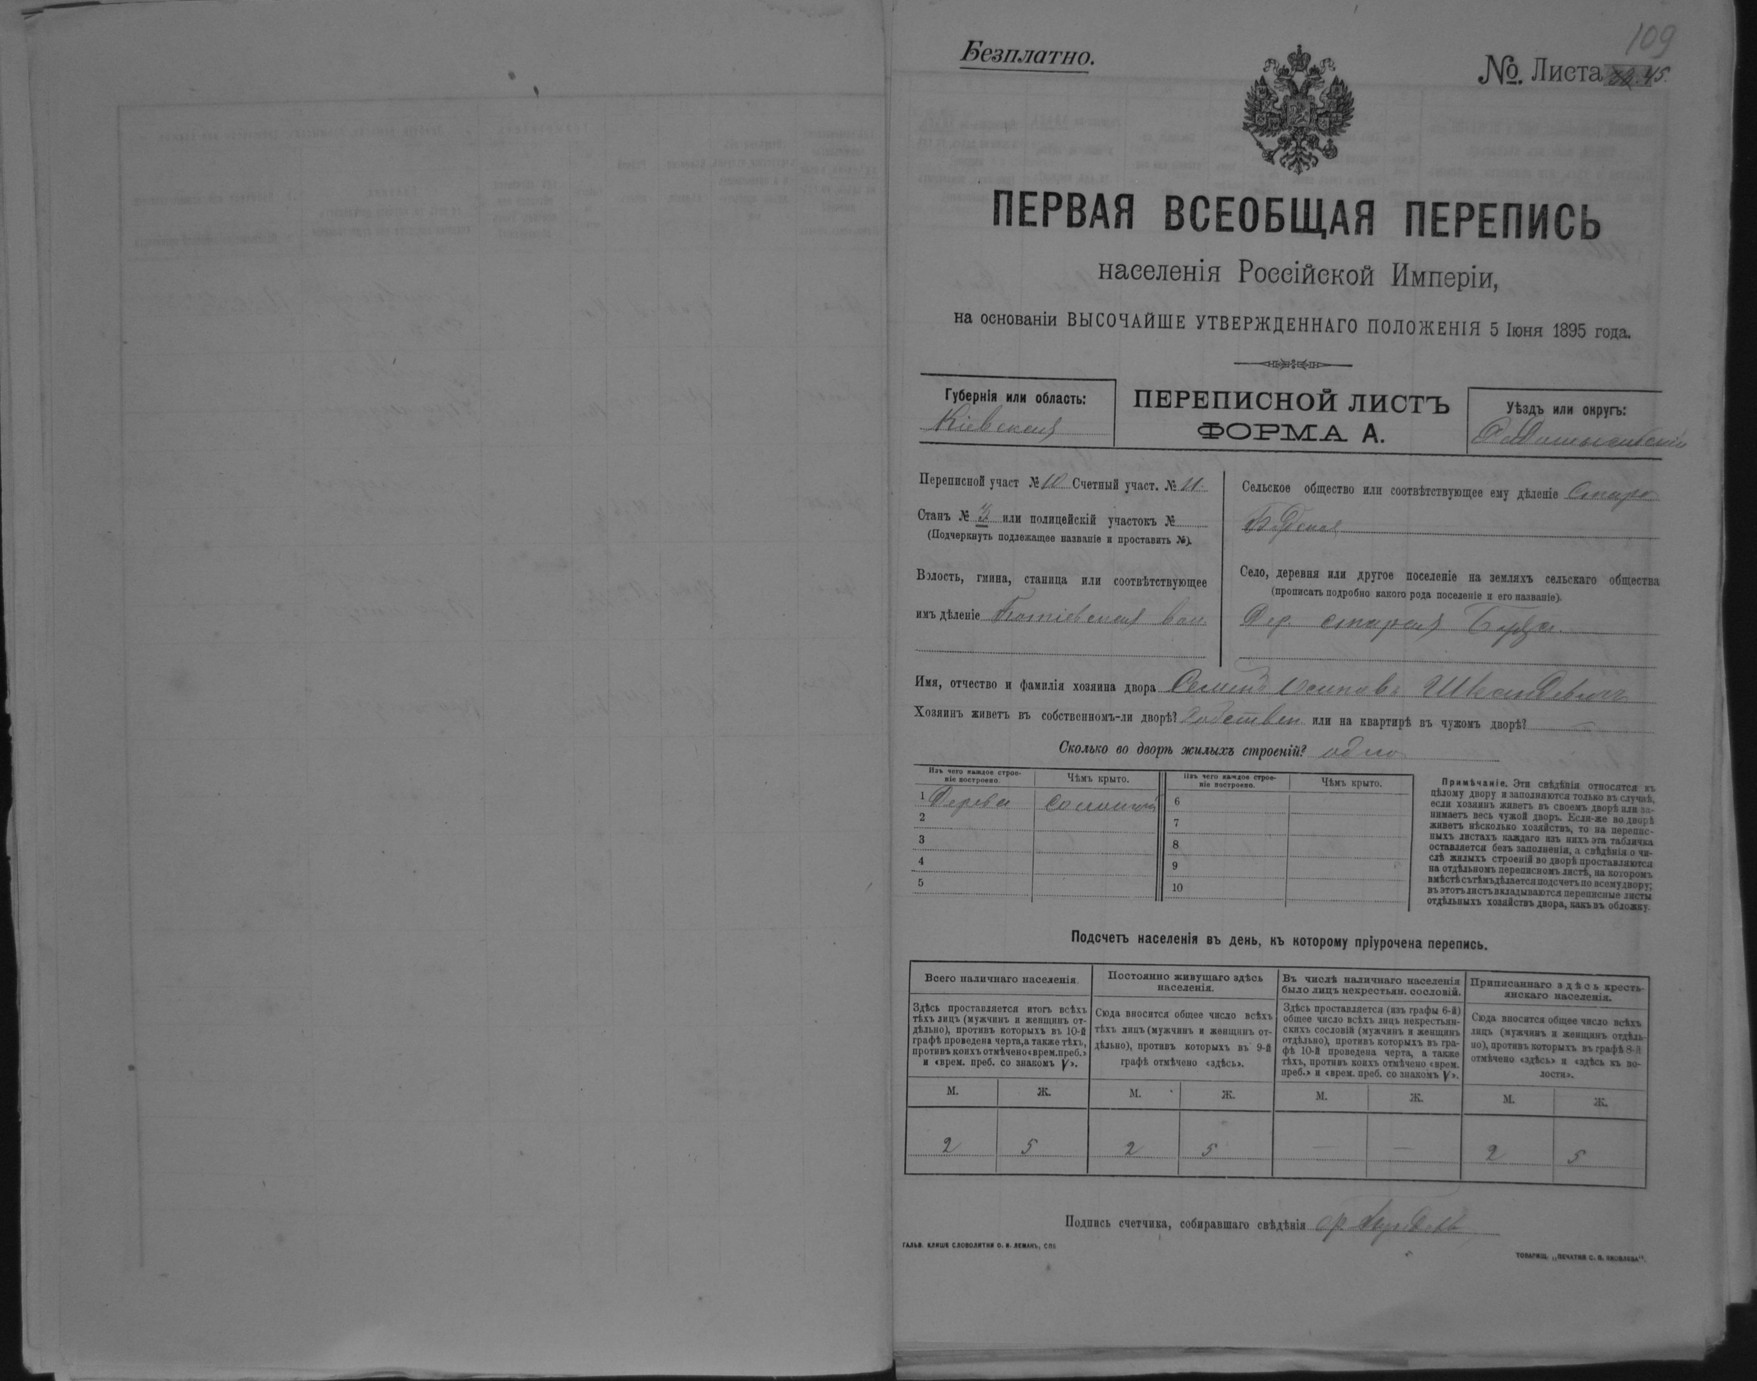 109
Безплатно.
№. Листа 45.
ПЕРВАЯ ВСЕОБЩАЯ ПЕРЕПИСЬ
населенія Россійской Имперіи,
на основаніи ВЫСОЧАЙШЕ УТВЕРЖДЕННАГО ПОЛОЖЕНІЯ 5 Іюня 1895 года.
Губернія или область:
Кіевская
ПЕРЕПИСНОЙ ЛИСТЪ
ФОРМА А.
Уѣздъ или округъ:
Переписной участ № 10 Счетный участ. № 11
Станъ № 3 или полицейскій участокъ №
(Подчеркнуть подлежащее названіе и проставить №).
Волость, гмина, станица или соотвѣтствующее
имъ дѣленіе вол
Сельское общество или соотвѣтствующее ему дѣленіе Старо
Село, деревня или другое поселеніе на земляхъ сельскаго общества
(прописать подробно какого рода поселеніе и его названіе).
Дер. старая Буда.
Имя, отчество и фамилія хозяина двора Семенъ Осиповъ
Хозяинъ живетъ въ собственномъ-ли дворѣ? Собствен или на квартирѣ въ чужомъ дворѣ? —
Сколько во дворѣ жилыхъ строеній? одно
Изъ чего каждое строе-
ніе построено.
Чѣмъ крыто.
Изъ чего каждое строе-
ніе построено.
Чѣмъ крыто.
1 Дерева соломой 6
2 7
3 8
4 9
5 10
Примѣчаніе. Эти свѣдѣнія относятся къ
цѣлому двору и заполняются только въ случаѣ,
если хозяинъ живетъ въ своемъ дворѣ или за-
нимаетъ весь чужой дворъ. Если-же во дворѣ
живетъ нѣсколько хозяйствъ, то на перепис-
ныхъ листахъ каждаго изъ нихъ эта табличка
оставляется безъ заполненія, а свѣдѣнія о чи-
слѣ жилыхъ строеній во дворѣ проставляются
на отдѣльномъ переписномъ листѣ, на которомъ
вмѣстѣ съ тѣмъ дѣлается подсчетъ по всему двору;
въ этотъ листъ вкладываются переписные листы
отдѣльныхъ хозяйствъ двора, какъ въ обложку.
Подсчетъ населенія въ день, къ которому пріурочена перепись.
Всего наличнаго населенія.
Здѣсь проставляется итогъ всѣхъ
тѣхъ лицъ (мужчинъ и женщинъ от-
дѣльно), противъ которыхъ въ 10-й
графѣ проведена черта, а также тѣхъ,
противъ коихъ отмѣчено «врем. преб.»
и «врем. преб. со знакомъ V».
Постоянно живущаго здѣсь
населенія.
Сюда вносится общее число всѣхъ
тѣхъ лицъ (мужчинъ и женщинъ от-
дѣльно), противъ которыхъ въ 9-й
графѣ отмѣчено «здѣсь».
Въ числѣ наличнаго населенія
было лицъ некрестьян. сословій.
Здѣсь проставляется (изъ графы 6-й)
общее число всѣхъ лицъ некрестьян-
скихъ сословій (мужчинъ и женщинъ
отдѣльно), противъ которыхъ въ гра-
фѣ 10-й проведена черта, а также
тѣхъ, противъ коихъ отмѣчено «врем.
преб.» и «врем. преб. со знакомъ V».
Приписаннаго здѣсь кресть-
янскаго населенія.
Сюда вносится общее число всѣхъ
лицъ (мужчинъ и женщинъ отдѣль-
но), противъ которыхъ въ графѣ 8-й
отмѣчено «здѣсь» и «здѣсь въ во-
лости».
М. Ж. М. Ж. М. Ж. М. Ж.
2 5 2 5 — — 2 5
Подпись счетчика, собиравшаго свѣдѣнія
ГАЛЬВ. КЛИШЕ СЛОВОЛИТНИ О. И. ЛЕМАНЪ, СПБ
ТОВАРИЩ. „ПЕЧАТНЯ С. П. ЯКОВЛЕВА".